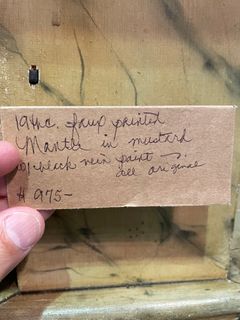 19thc. faux painted
Mantle in mustard
w/ black vein paint —
all original
# 975-